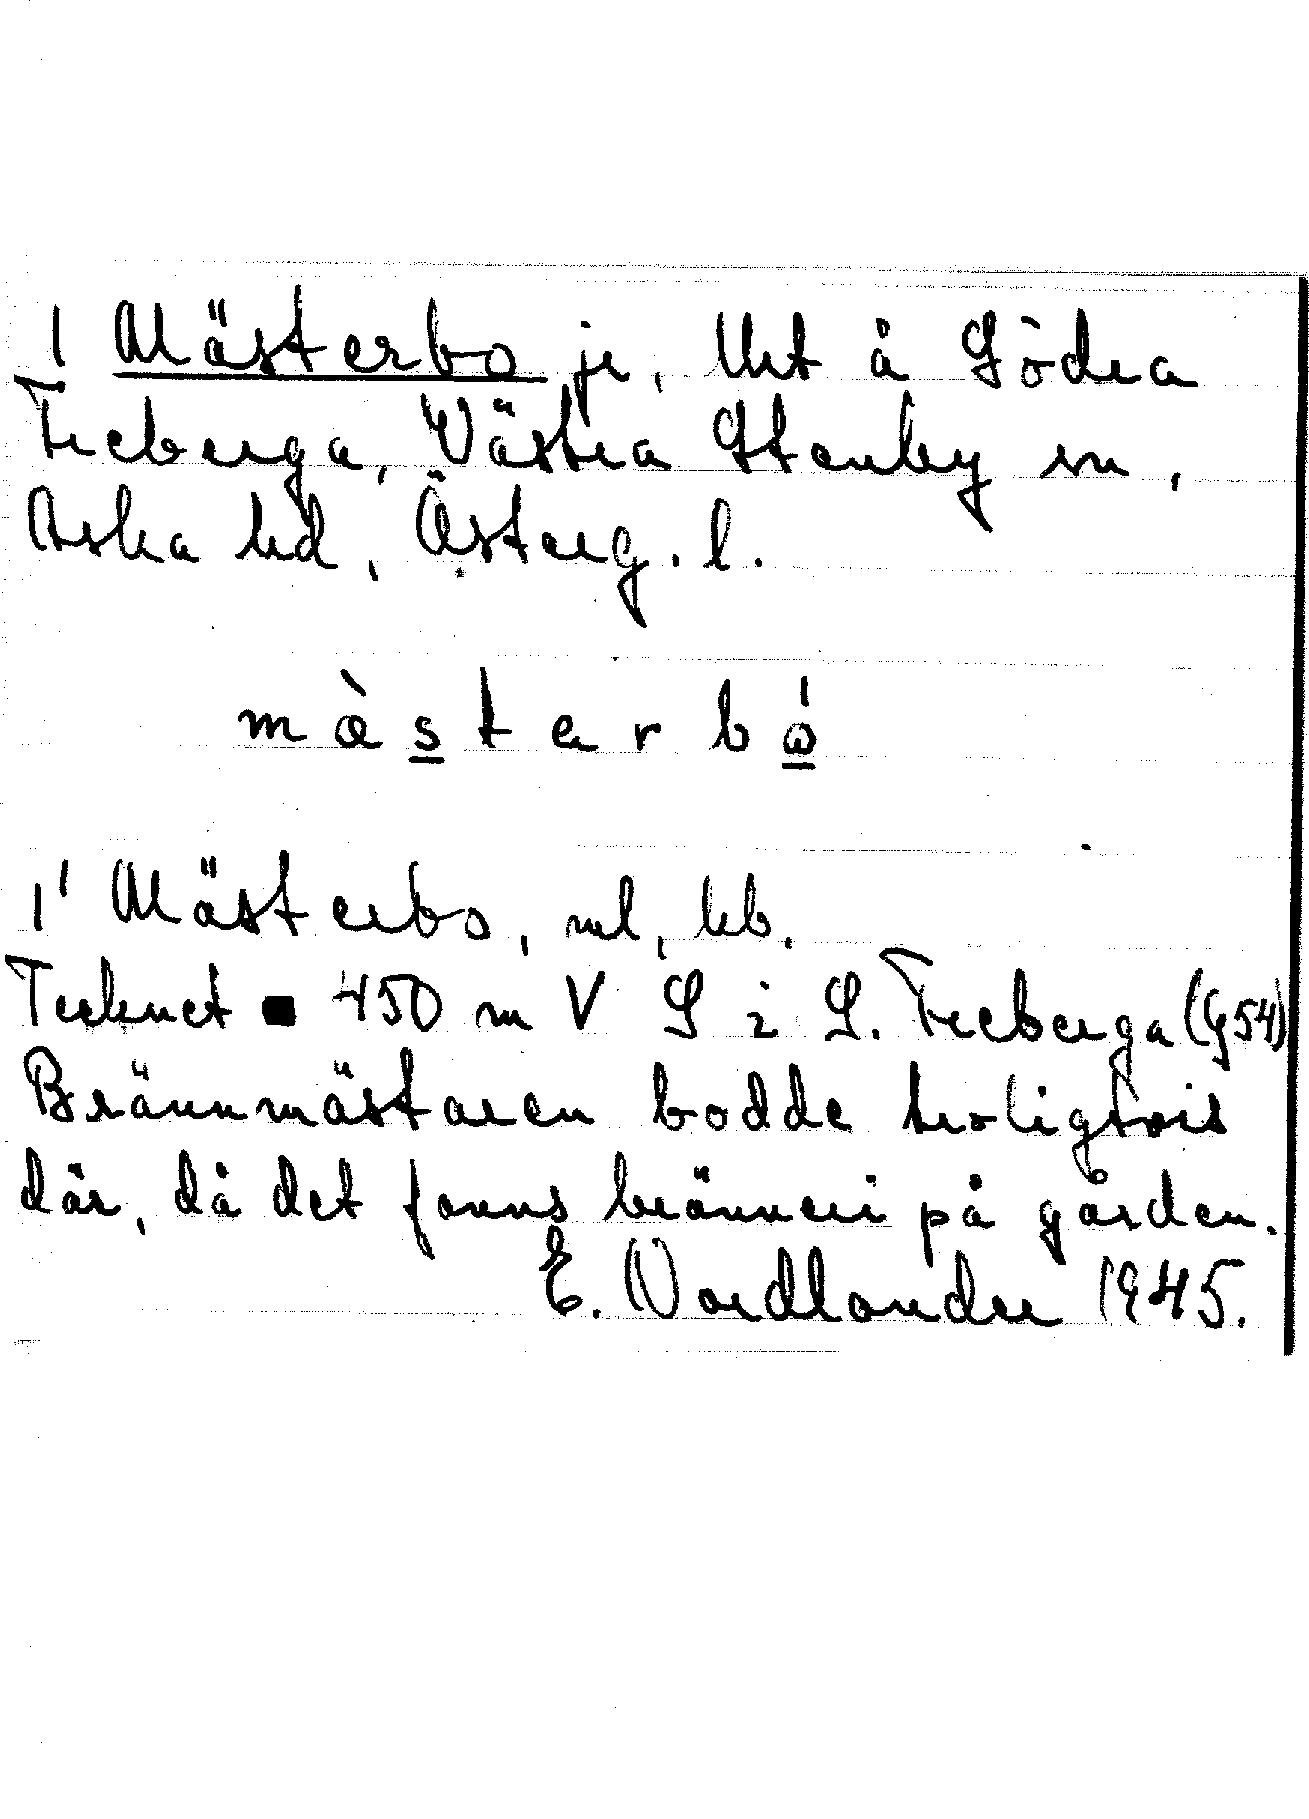 1 Mästerbo je, tht å Södra
Freberga, Västra Stenby sn,
Aska hd, Österg. l.
màstarbó
1' Mästerbo, ml, kb.
Tecknet ■ 450 m V S i S. Freberga (G54)
Brännmästaren bodde troligtvis
där, då det fanns bränneri på gården.
E. Nordlander 1945.